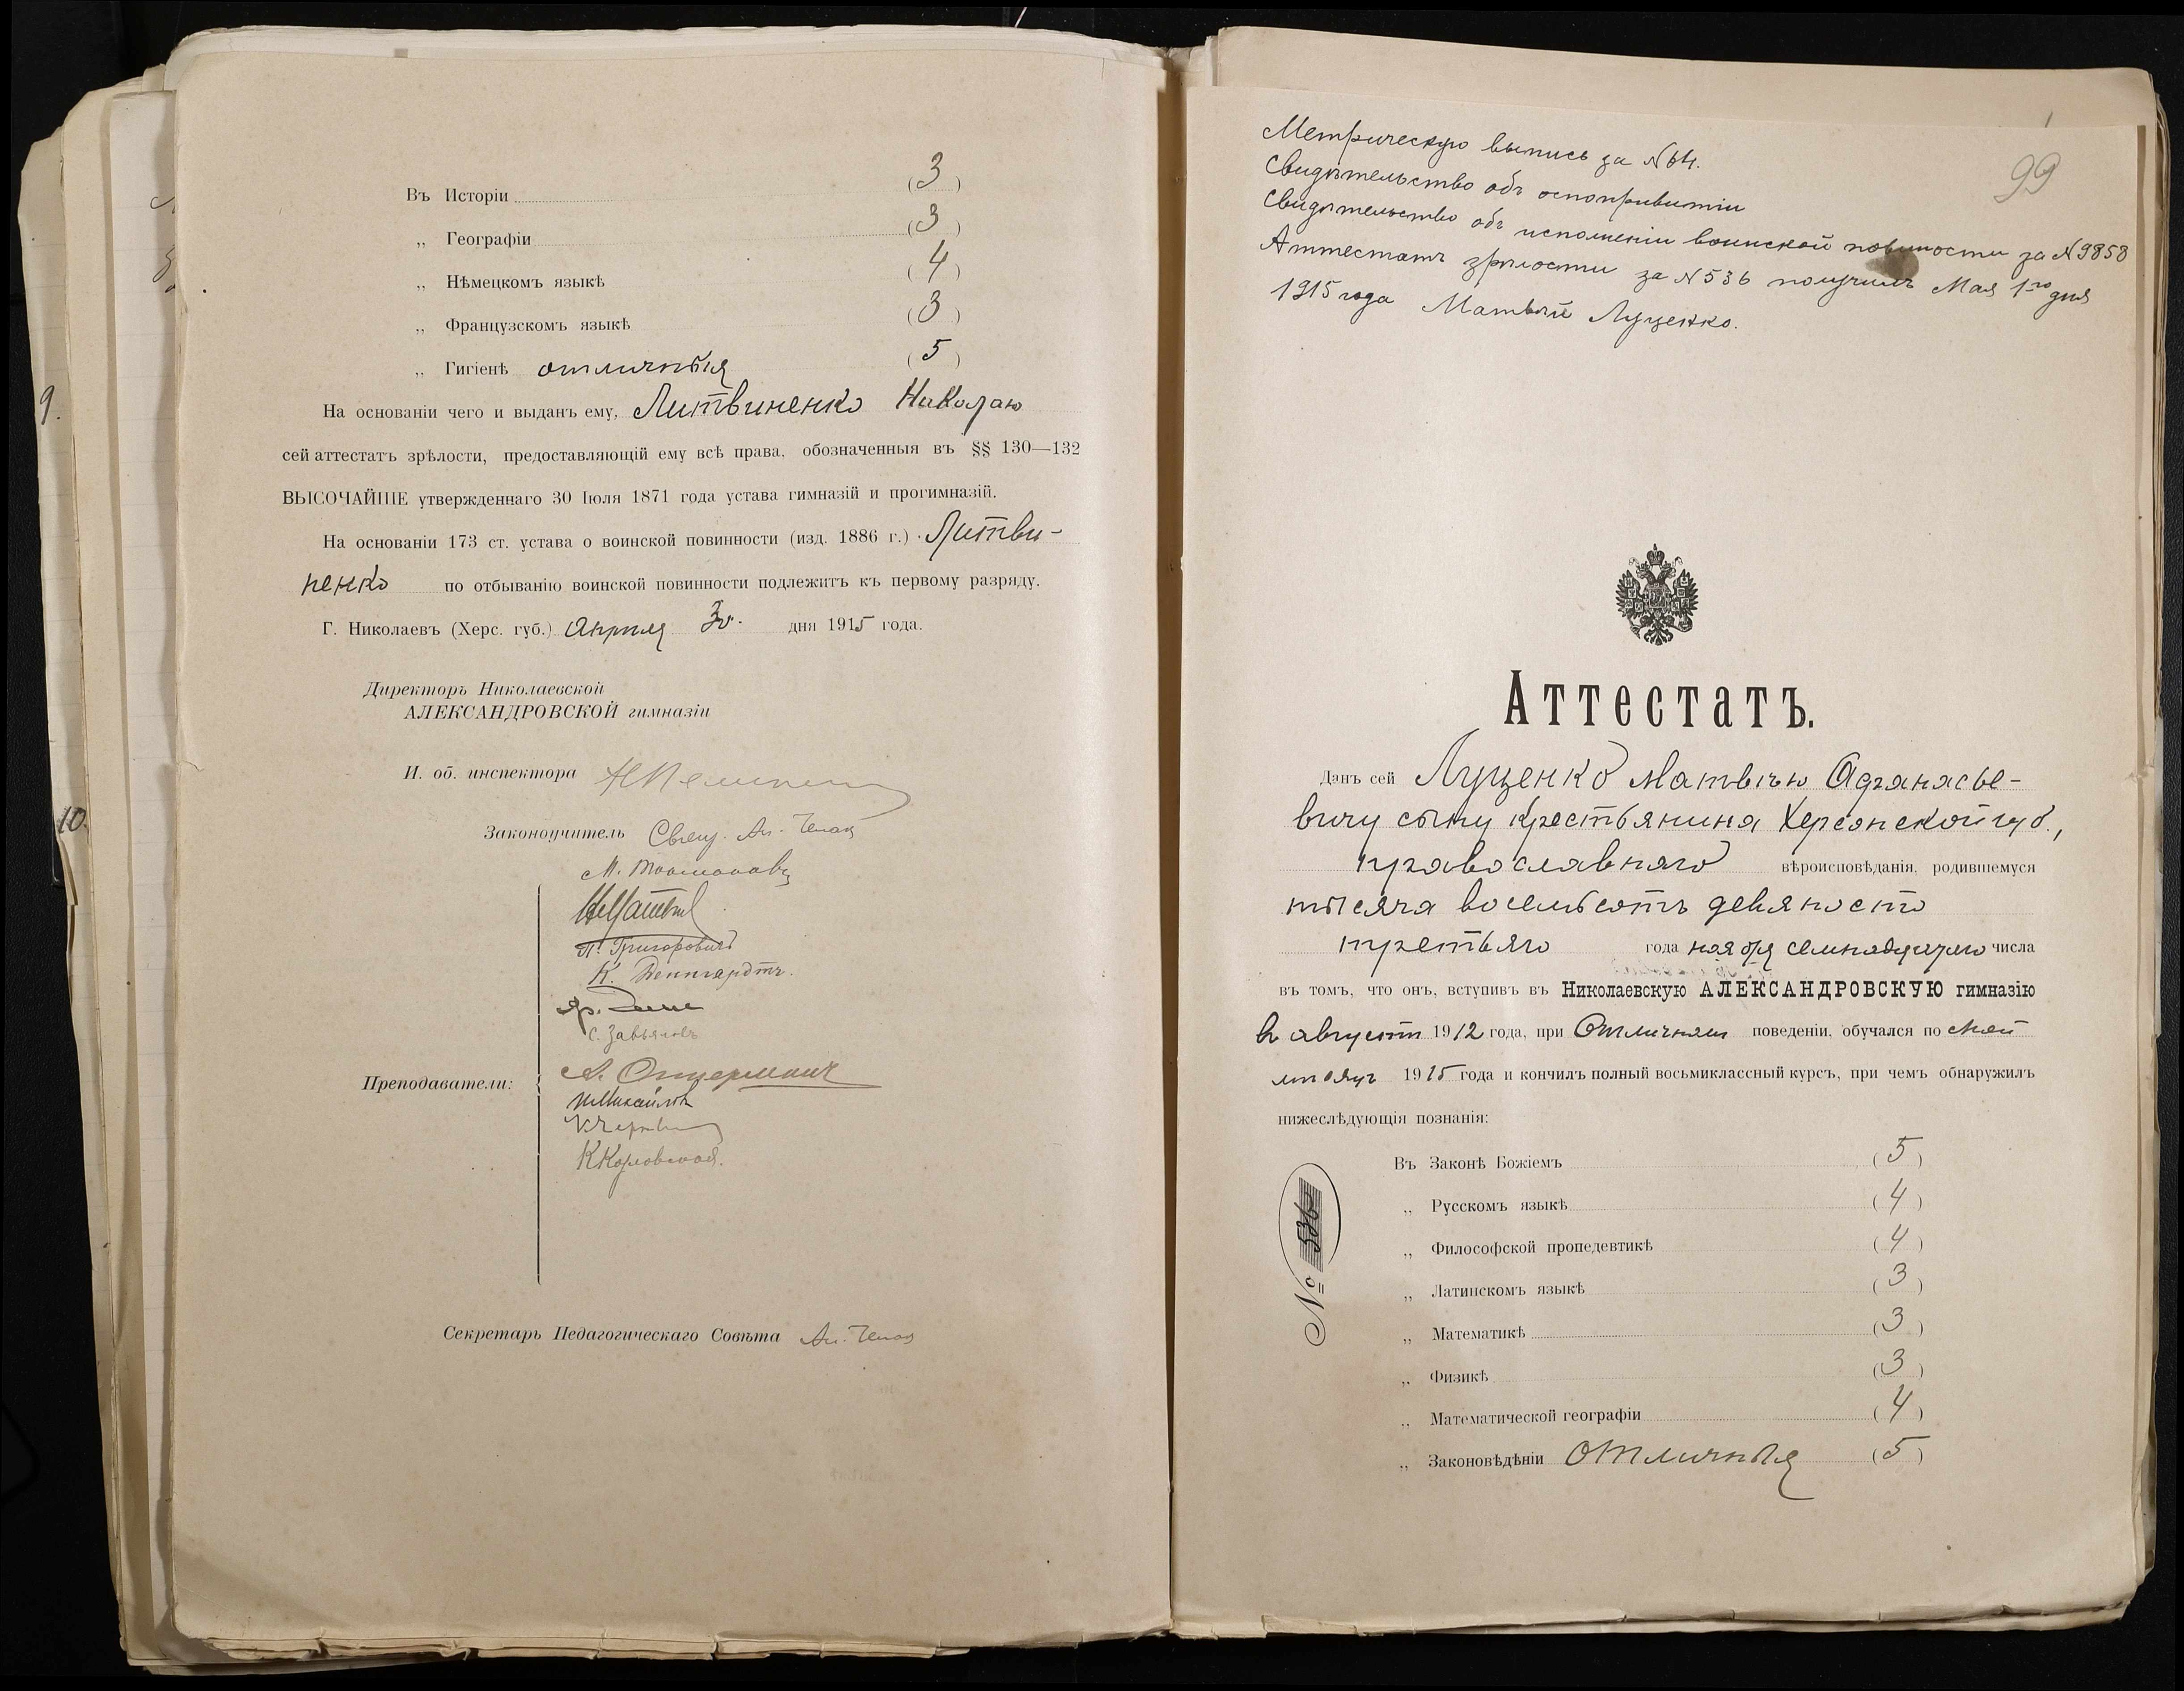 Въ Исторіи (3)
„ Географіи (3)
„ Нѣмецкомъ языкѣ (4)
„ Французскомъ языкѣ (3)
„ Гигіенѣ отличныя (5)
На основаніи чего и выданъ ему, Литвиненко Николаю
сей аттестатъ зрѣлости, предоставляющій ему всѣ права, обозначенныя въ §§ 130—132
ВЫСОЧАЙШЕ утвержденнаго 30 Іюля 1871 года устава гимназій и прогимназій.
На основаніи 173 ст. устава о воинской повинности (изд. 1886 г.) Литви-
ненко по отбыванію воинской повинности подлежитъ къ первому разряду.
Г. Николаевъ (Херс. губ.) Апрѣля 30. дня 1915 года.
Директоръ Николаевской
АЛЕКСАНДРОВСКОЙ гимназіи
И. об. инспектора
Законоучитель Свящ. Ал.
М.
П. Григоровичъ
К. Венгардтъ.
С. Завьяловъ
Преподаватели:
А.
И. Михайловъ
К. Козловской.
Секретарь Педагогическаго Совѣта Ал.
9.
10.
99
Метрическую выпись за №64.
Свидѣтельство объ оспопрививтіи
Свидѣтельство объ исполненіи воинской повинности за №9858
Аттестатъ зрѣлости за №536 получилъ Мая 1го дня
1915 года Матвѣй Луценко.
Аттестатъ.
Данъ сей Луценко Матвѣю Афанасье-
вичу сыну крестьянина Херсонской губ.,
православнаго вѣроисповѣданія, родившемуся
тысяча восемьсотъ девяносто
третьяго года ноября семнадцатаго числа
въ томъ, что онъ, вступивъ въ Николаевскую АЛЕКСАНДРОВСКУЮ гимназію
въ августѣ 1912 года, при Отличномъ поведеніи, обучался по
1915 года и кончилъ полный восьмиклассный курсъ, при чемъ обнаружилъ
нижеслѣдующія познанія:
Въ Законѣ Божіемъ (5)
„ Русскомъ языкѣ (4)
„ Философской пропедевтикѣ (4)
„ Латинскомъ языкѣ (3)
„ Математикѣ (3)
„ Физикѣ (3)
„ Математической географіи (4)
„ Законовѣдѣніи отличныя (5)
№ 536